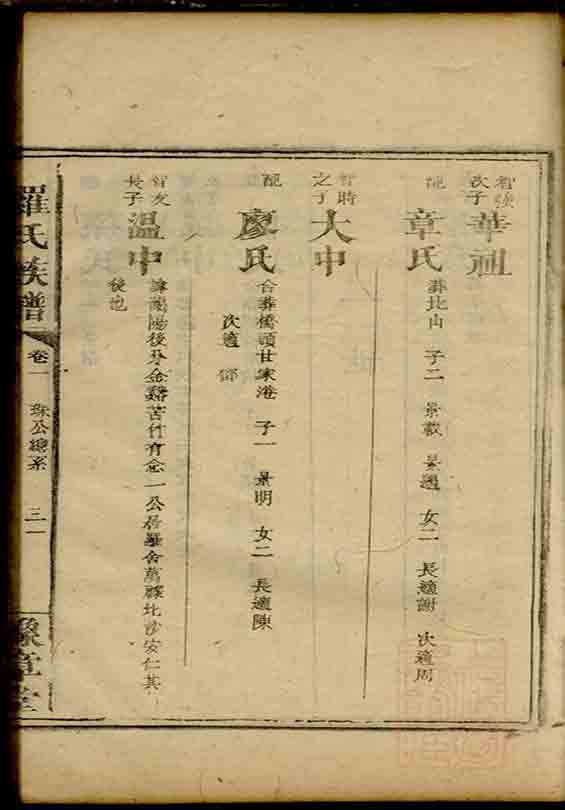 智強次子
華祖
配
章氏
葬北山 子二 景載 景適 女二 長適謝 次適周
智時之子
大中
配
廖氏
合葬橋頭甘家港 子一 景明 女二 長適陳
次適鄧
智友長子
溫中
後分金谿苦竹育念一公居羅舍萬縣北沙安仁其
後也
羅氏族譜
卷一
珠公總系
三一
豫章堂